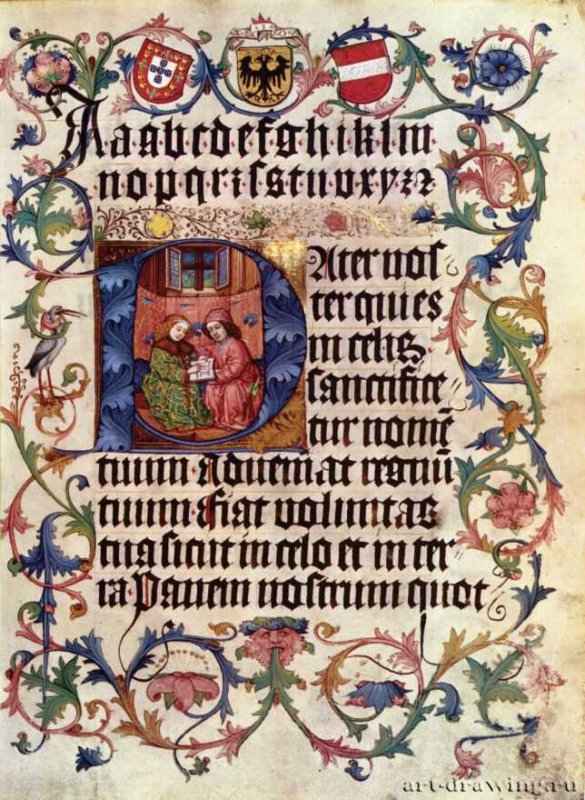 Aaabcdefghiklm
nopqrꝛſstuvxyzꝛ
PAter noſ
ter qui es
in celis
ſanctifice
tur nomē
tuum Adueniat regnū
tuum fiat voluntas
tua ſicut in celo et in ter
ra Panem noſtrum quot
art-drawing.ru